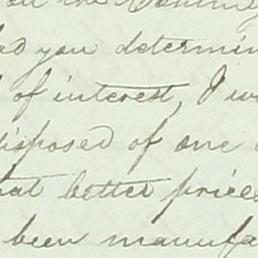 on the
had you determin
of interest, I w
disposed of one
at better price
been manufa